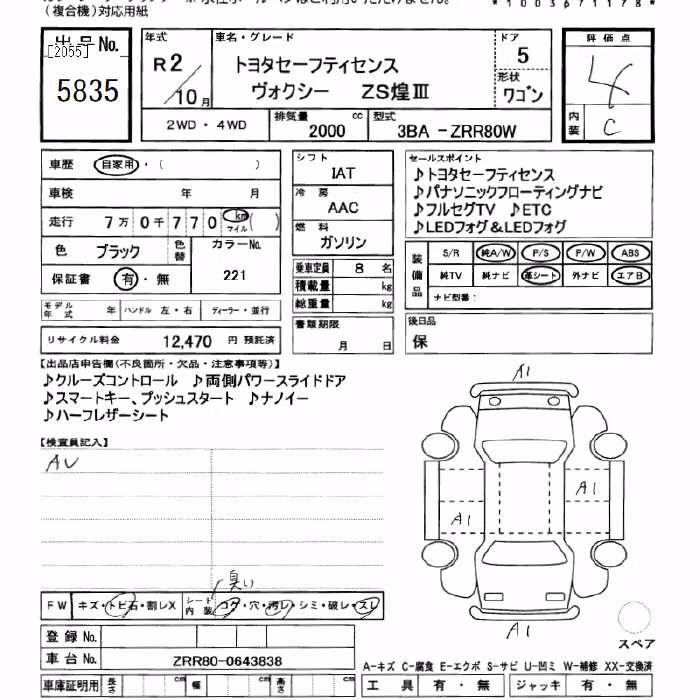 (複合機)対応用紙
*1003671178*
出品No.
[2055]
5835
年式
R2/10月
車名・グレード
トヨタセーフティセンス
ヴォクシー ZS煌Ⅲ
ドア
5
形状
ワゴン
評価点
4
内装
C
2WD・4WD
排気量
2000 cc
型式
3BA -ZRR80W
車歴 自家用・( )
車検 年 月
走行 7万0千770 km マイル ( )
色 ブラック 色替 カラーNo. 221
保証書 有・無
シフト
IAT
冷房
AAC
燃料
ガソリン
乗車定員 8 名
積載量 kg
総重量 kg
書類期限
月 日
セールスポイント
♪トヨタセーフティセンス
♪パナソニックフローティングナビ
♪フルセグTV ♪ETC
♪LEDフォグ&LEDフォグ
装備品
S/R 純A/W P/S P/W ABS
純TV 純ナビ 革シート 外ナビ エアB
ナビ型番:
モデル年式 年 ハンドル 左・右 ディーラー・並行
リサイクル料金 12,470 円 預託済
後日品
保
【出品店申告欄(不良箇所・欠品・注意事項等)】
♪クルーズコントロール ♪両側パワースライドドア
♪スマートキー、プッシュスタート ♪ナノイー
♪ハーフレザーシート
【検査員記入】
AV
A1
A1
A1
A1
臭い
FW キズ・トビ石・割レX シート内装 コゲ・穴・汚レ・シミ・破レ・スレ
登録No.
車台No. ZRR80-0643838
スペア
A-キズ C-腐食 E-エクボ S-サビ U-凹ミ W-補修 XX-交換済
車庫証明用 長さ cm 幅 cm 高さ cm
工具 有・無 ジャッキ 有・無